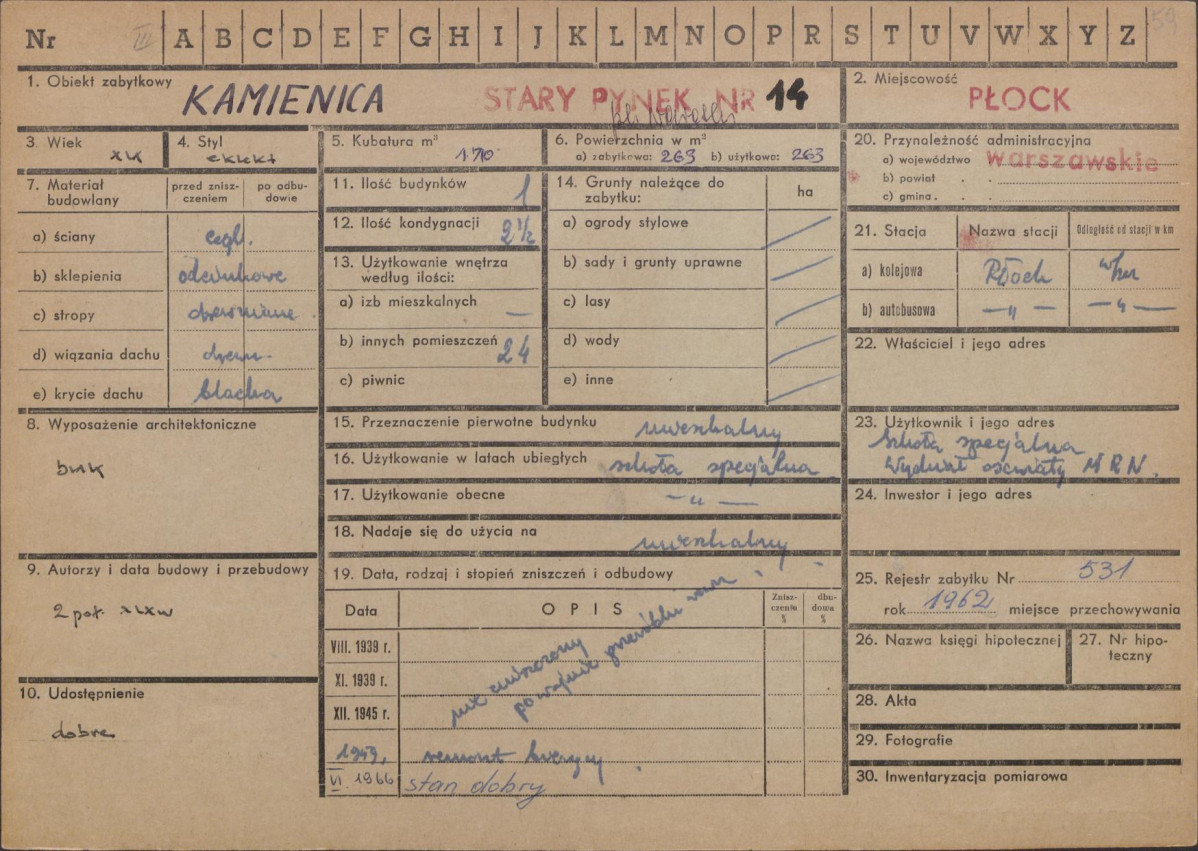 Nr III A B C D E F G H I J K L M N O P R S T U V W X Y Z 59
1. Obiekt zabytkowy
KAMIENICA STARY RYNEK NR 14
2. Miejscowość
PŁOCK
3. Wiek
XIX
4. Styl
eklekt
5. Kubatura m³
170
6. Powierzchnia w m²
a) zabytkowa: 263 b) użytkowa: 263
20. Przynależność administracyjna
a) województwo Warszawskie
b) powiat . .
c) gmina . . .
7. Materiał budowlany
przed zniszczeniem
po odbudowie
a) ściany cegl.
b) sklepienia odcinkowe
c) stropy drewniane
d) wiązania dachu drewn.
e) krycie dachu blacha
11. Ilość budynków 1
12. Ilość kondygnacji 2 1/2
13. Użytkowanie wnętrza według ilości:
a) izb mieszkalnych —
b) innych pomieszczeń 24
c) piwnic
14. Grunty należące do zabytku:
ha
a) ogrody stylowe
b) sady i grunty uprawne
c) lasy
d) wody
e) inne
21. Stacja
Nazwa stacji
Odległość od stacji w km
a) kolejowa Płock
b) autobusowa — „ — — „ —
22. Właściciel i jego adres
8. Wyposażenie architektoniczne
brak
15. Przeznaczenie pierwotne budynku mieszkalny
16. Użytkowanie w latach ubiegłych szkoła specjalna
17. Użytkowanie obecne — „ —
18. Nadaje się do użycia na mieszkalny
23. Użytkownik i jego adres
Szkoła specjalna
Wydział oświaty MRN.
24. Inwestor i jego adres
9. Autorzy i data budowy i przebudowy
2 poł. XIX w
10. Udostępnienie
dobre
19. Data, rodzaj i stopień zniszczeń i odbudowy
Data
OPIS
Zniszczenie %
dbudowa %
VIII. 1939 r.
XI. 1939 r.
XII. 1945 r.
nie zniszczony
po wojnie przeróbki
1959. remont bieżący.
VI 1966 stan dobry
25. Rejestr zabytku Nr 531
rok 1962 miejsce przechowywania
26. Nazwa księgi hipotecznej
27. Nr hipoteczny
28. Akta
29. Fotografie
30. Inwentaryzacja pomiarowa